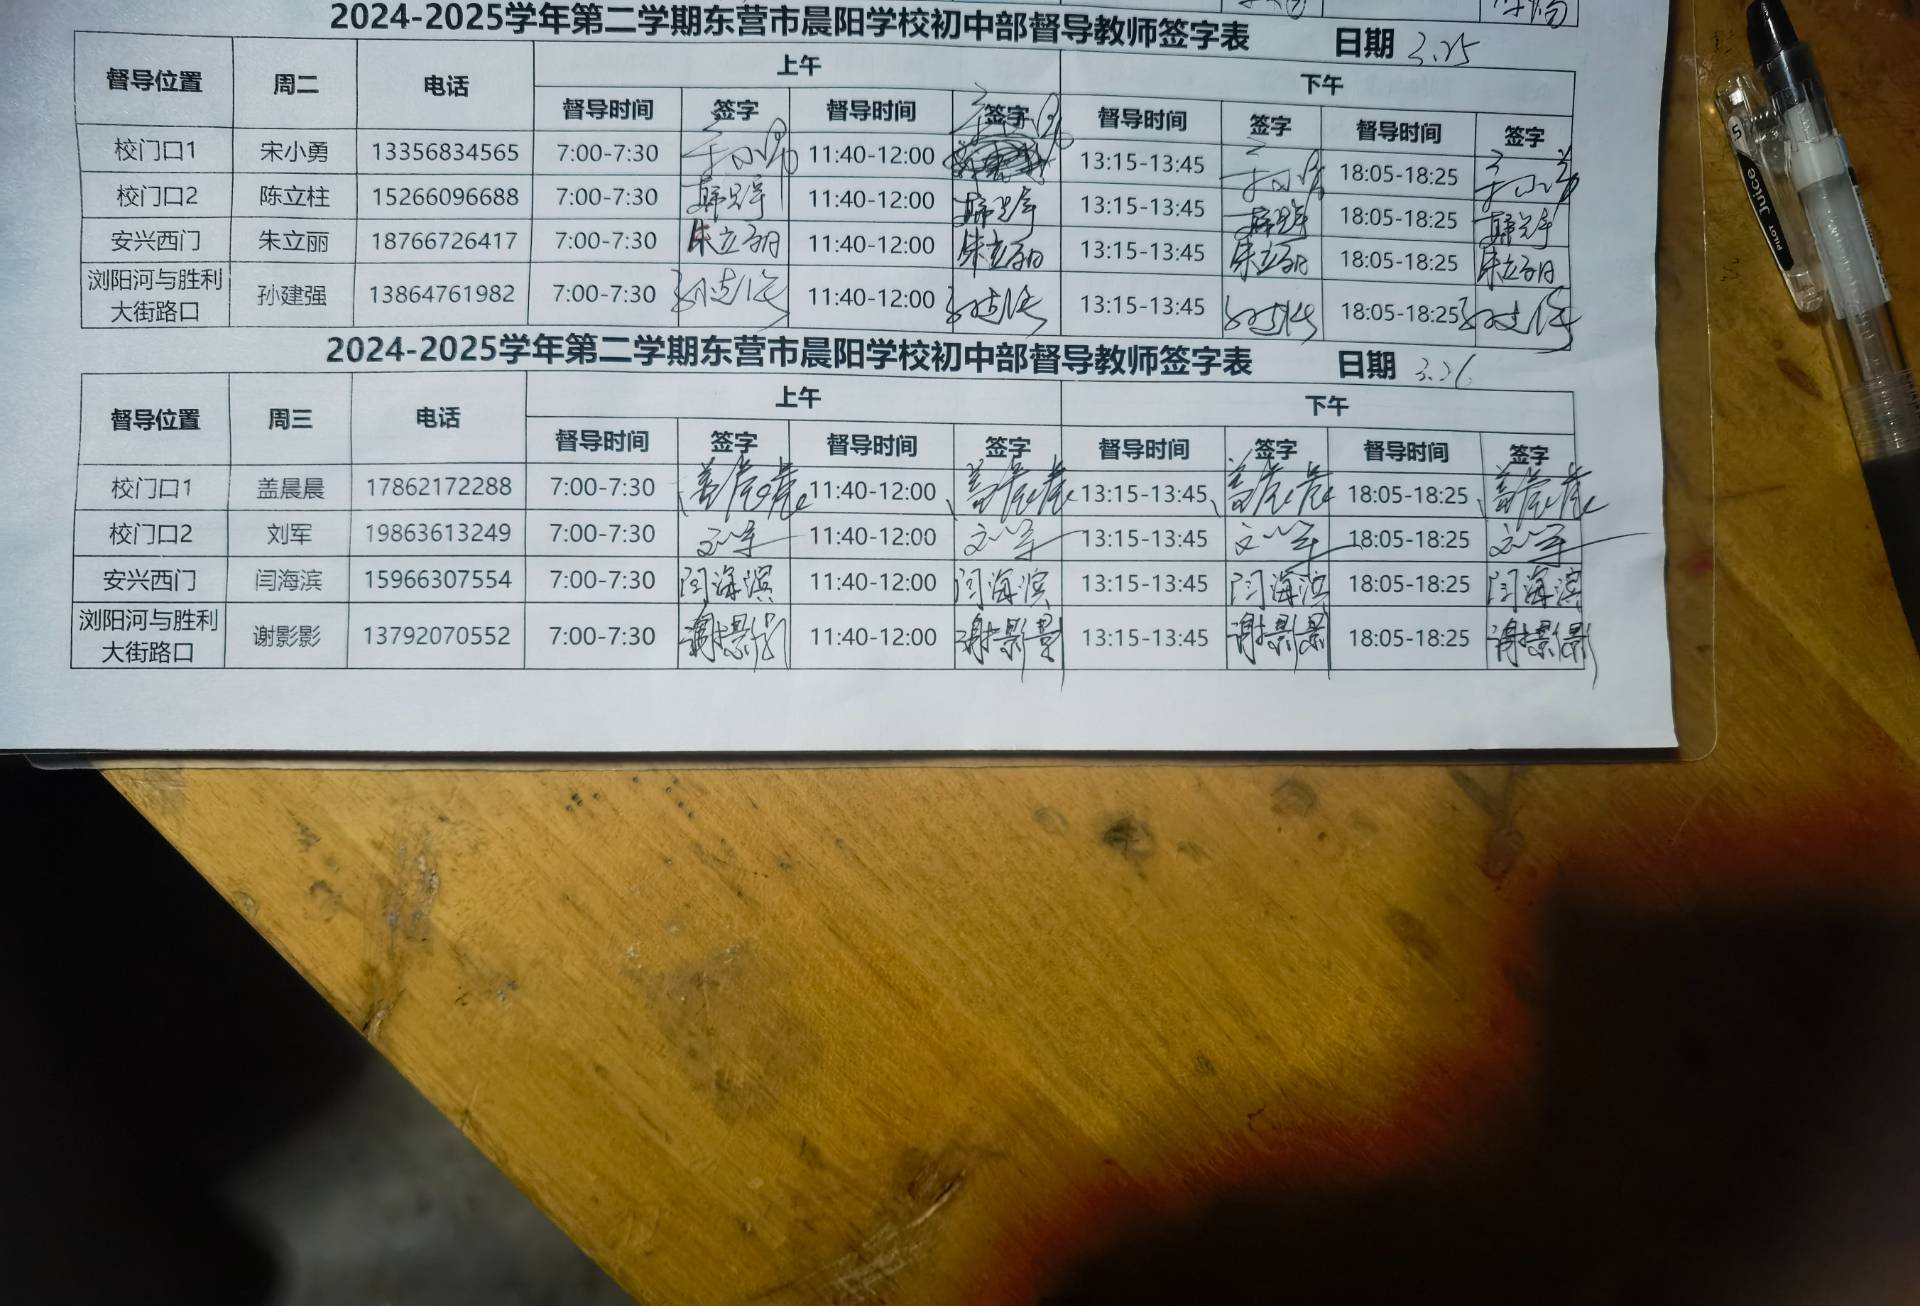 2024-2025学年第二学期东营市晨阳学校初中部督导教师签字表 日期 3.25
督导位置 周二 电话 上午 下午
督导时间 签字 督导时间 签字 督导时间 签字 督导时间 签字
校门口1 宋小勇 13356834565 7:00-7:30 11:40-12:00 13:15-13:45 18:05-18:25
校门口2 陈立柱 15266096688 7:00-7:30 11:40-12:00 13:15-13:45 18:05-18:25
安兴西门 朱立丽 18766726417 7:00-7:30 朱立丽 11:40-12:00 朱立丽 13:15-13:45 朱立丽 18:05-18:25 朱立丽
浏阳河与胜利
大街路口 孙建强 13864761982 7:00-7:30 孙建强 11:40-12:00 孙建强 13:15-13:45 孙建强 18:05-18:25 孙建强
2024-2025学年第二学期东营市晨阳学校初中部督导教师签字表 日期 3.26
督导位置 周三 电话 上午 下午
督导时间 签字 督导时间 签字 督导时间 签字 督导时间 签字
校门口1 盖晨晨 17862172288 7:00-7:30 盖晨晨 11:40-12:00 盖晨晨 13:15-13:45 盖晨晨 18:05-18:25 盖晨晨
校门口2 刘军 19863613249 7:00-7:30 刘军 11:40-12:00 刘军 13:15-13:45 刘军 18:05-18:25 刘军
安兴西门 闫海滨 15966307554 7:00-7:30 闫海滨 11:40-12:00 闫海滨 13:15-13:45 闫海滨 18:05-18:25 闫海滨
浏阳河与胜利
大街路口 谢影影 13792070552 7:00-7:30 谢影影 11:40-12:00 谢影影 13:15-13:45 谢影影 18:05-18:25 谢影影
5
Juice
PILOT